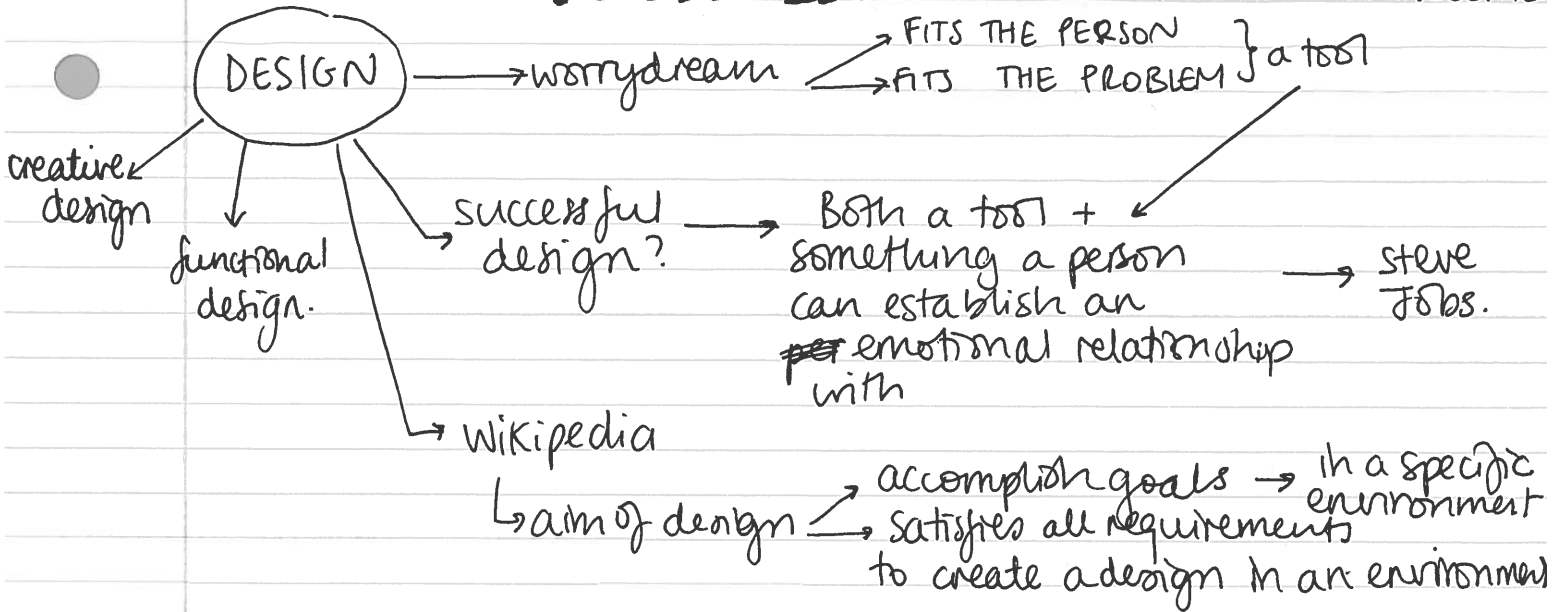 DESIGN
worrydream
FITS THE PERSON
FITS THE PROBLEM
a tool
creative
design
functional
design.
successful
design?
Both a tool +
something a person
can establish an
emotional relationship
with
steve
Jobs.
Wikipedia
aim of design
accomplish goals
in a specific
environment
satisfies all requirements
to create a design in an environment